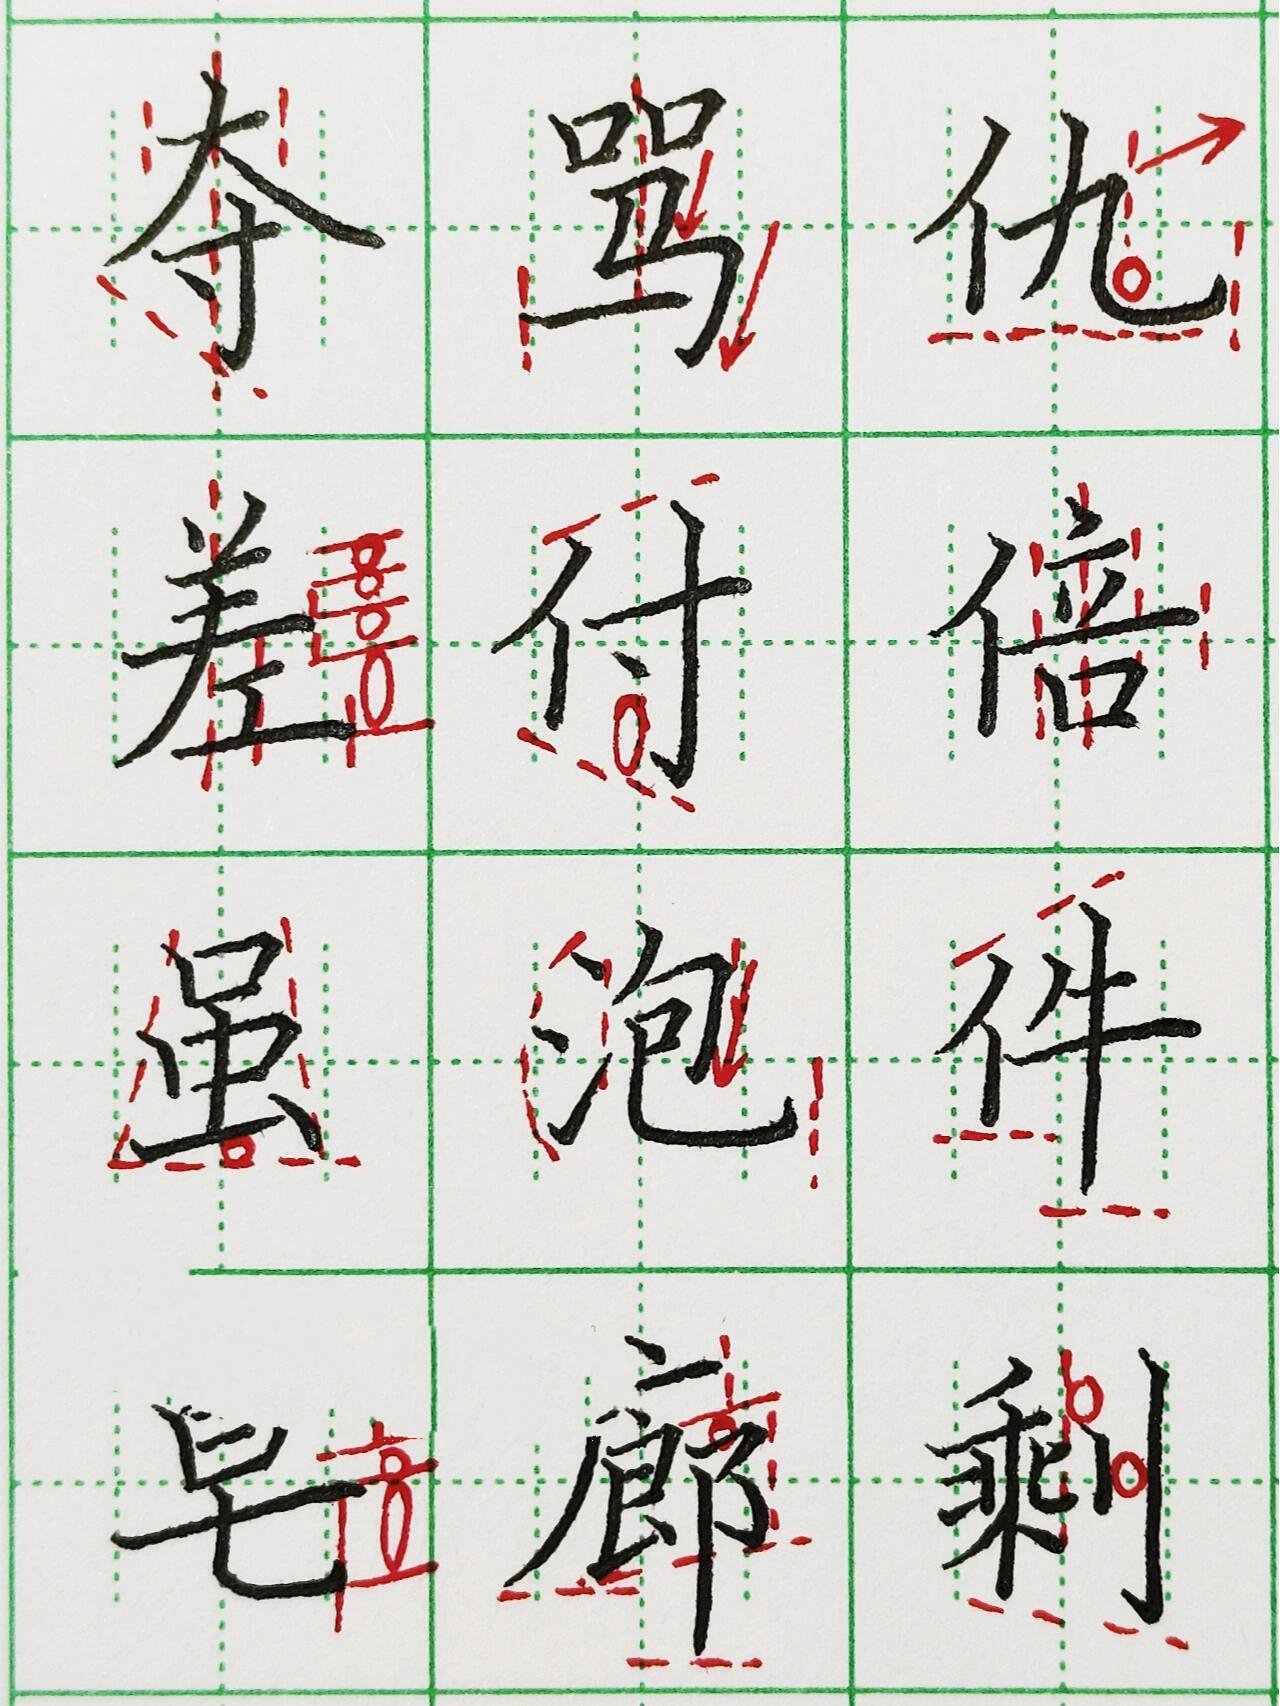 夺骂仇
差付倍
虽泡件
皂廊剩